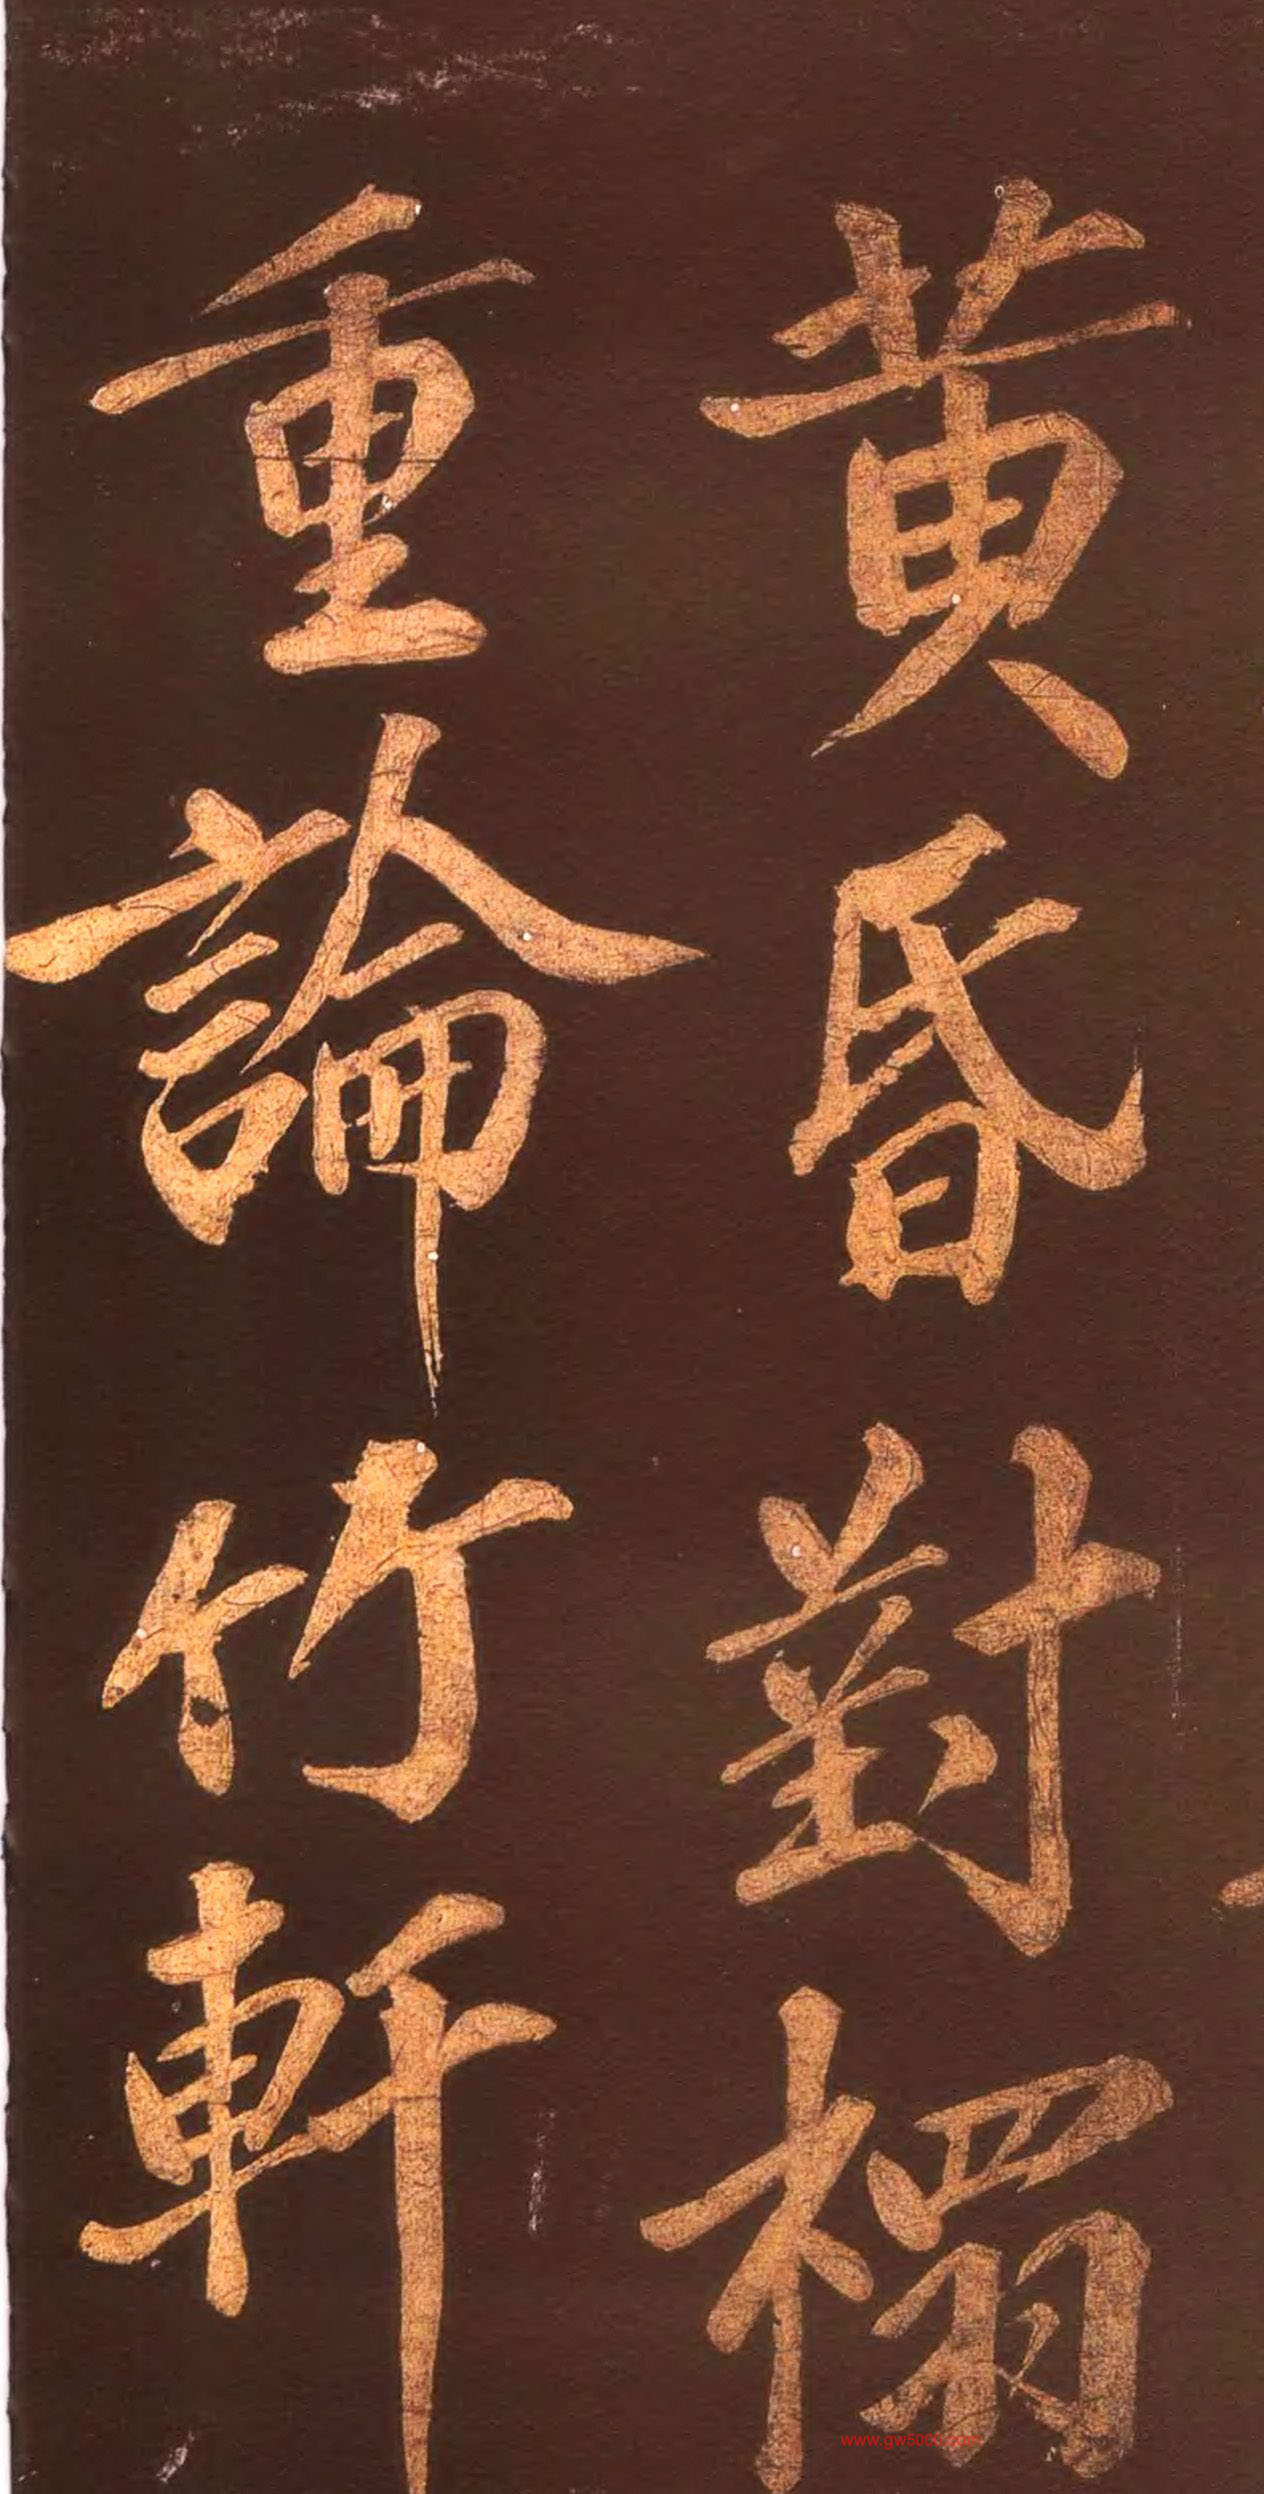 黄昏對榻
重論竹軒
www.gw5000.com